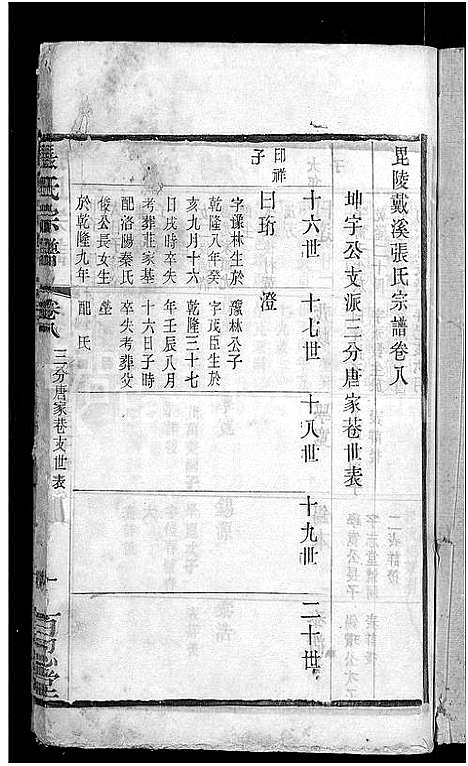 毘陵戴溪張氏宗譜卷八
坤宇公支派三分唐家巷世表
十六世　十七世　十八世　十九世　二十世
印祥
子
曰珩
字豫林生於
乾隆八年癸
亥九月十六
日戌時卒失
考葬莊家基
配洛陽秦氏
俊公長女生
於乾隆九年
澄
豫林公子
字茂臣生於
乾隆三十七
年壬辰八月
十六日子時
卒失考葬父
塋
配　氏
張氏宗譜
卷八
三分唐家巷支世表
一
百忍堂